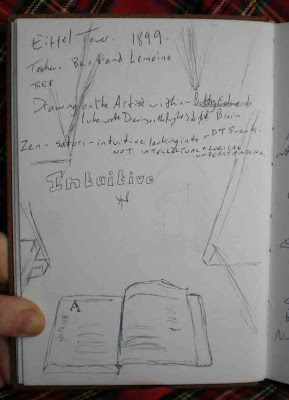 Eiffel Tower. 1899.
Bertrand Lemoine
Drawing on the Artist within - Betty Edwards
Drawing on the right side of Brain
Zen - Satori - intuitive looking into - DT Suzuki
NOT INTELLECTUAL + LOGICAL
UNDERSTANDING
Intuitive
A